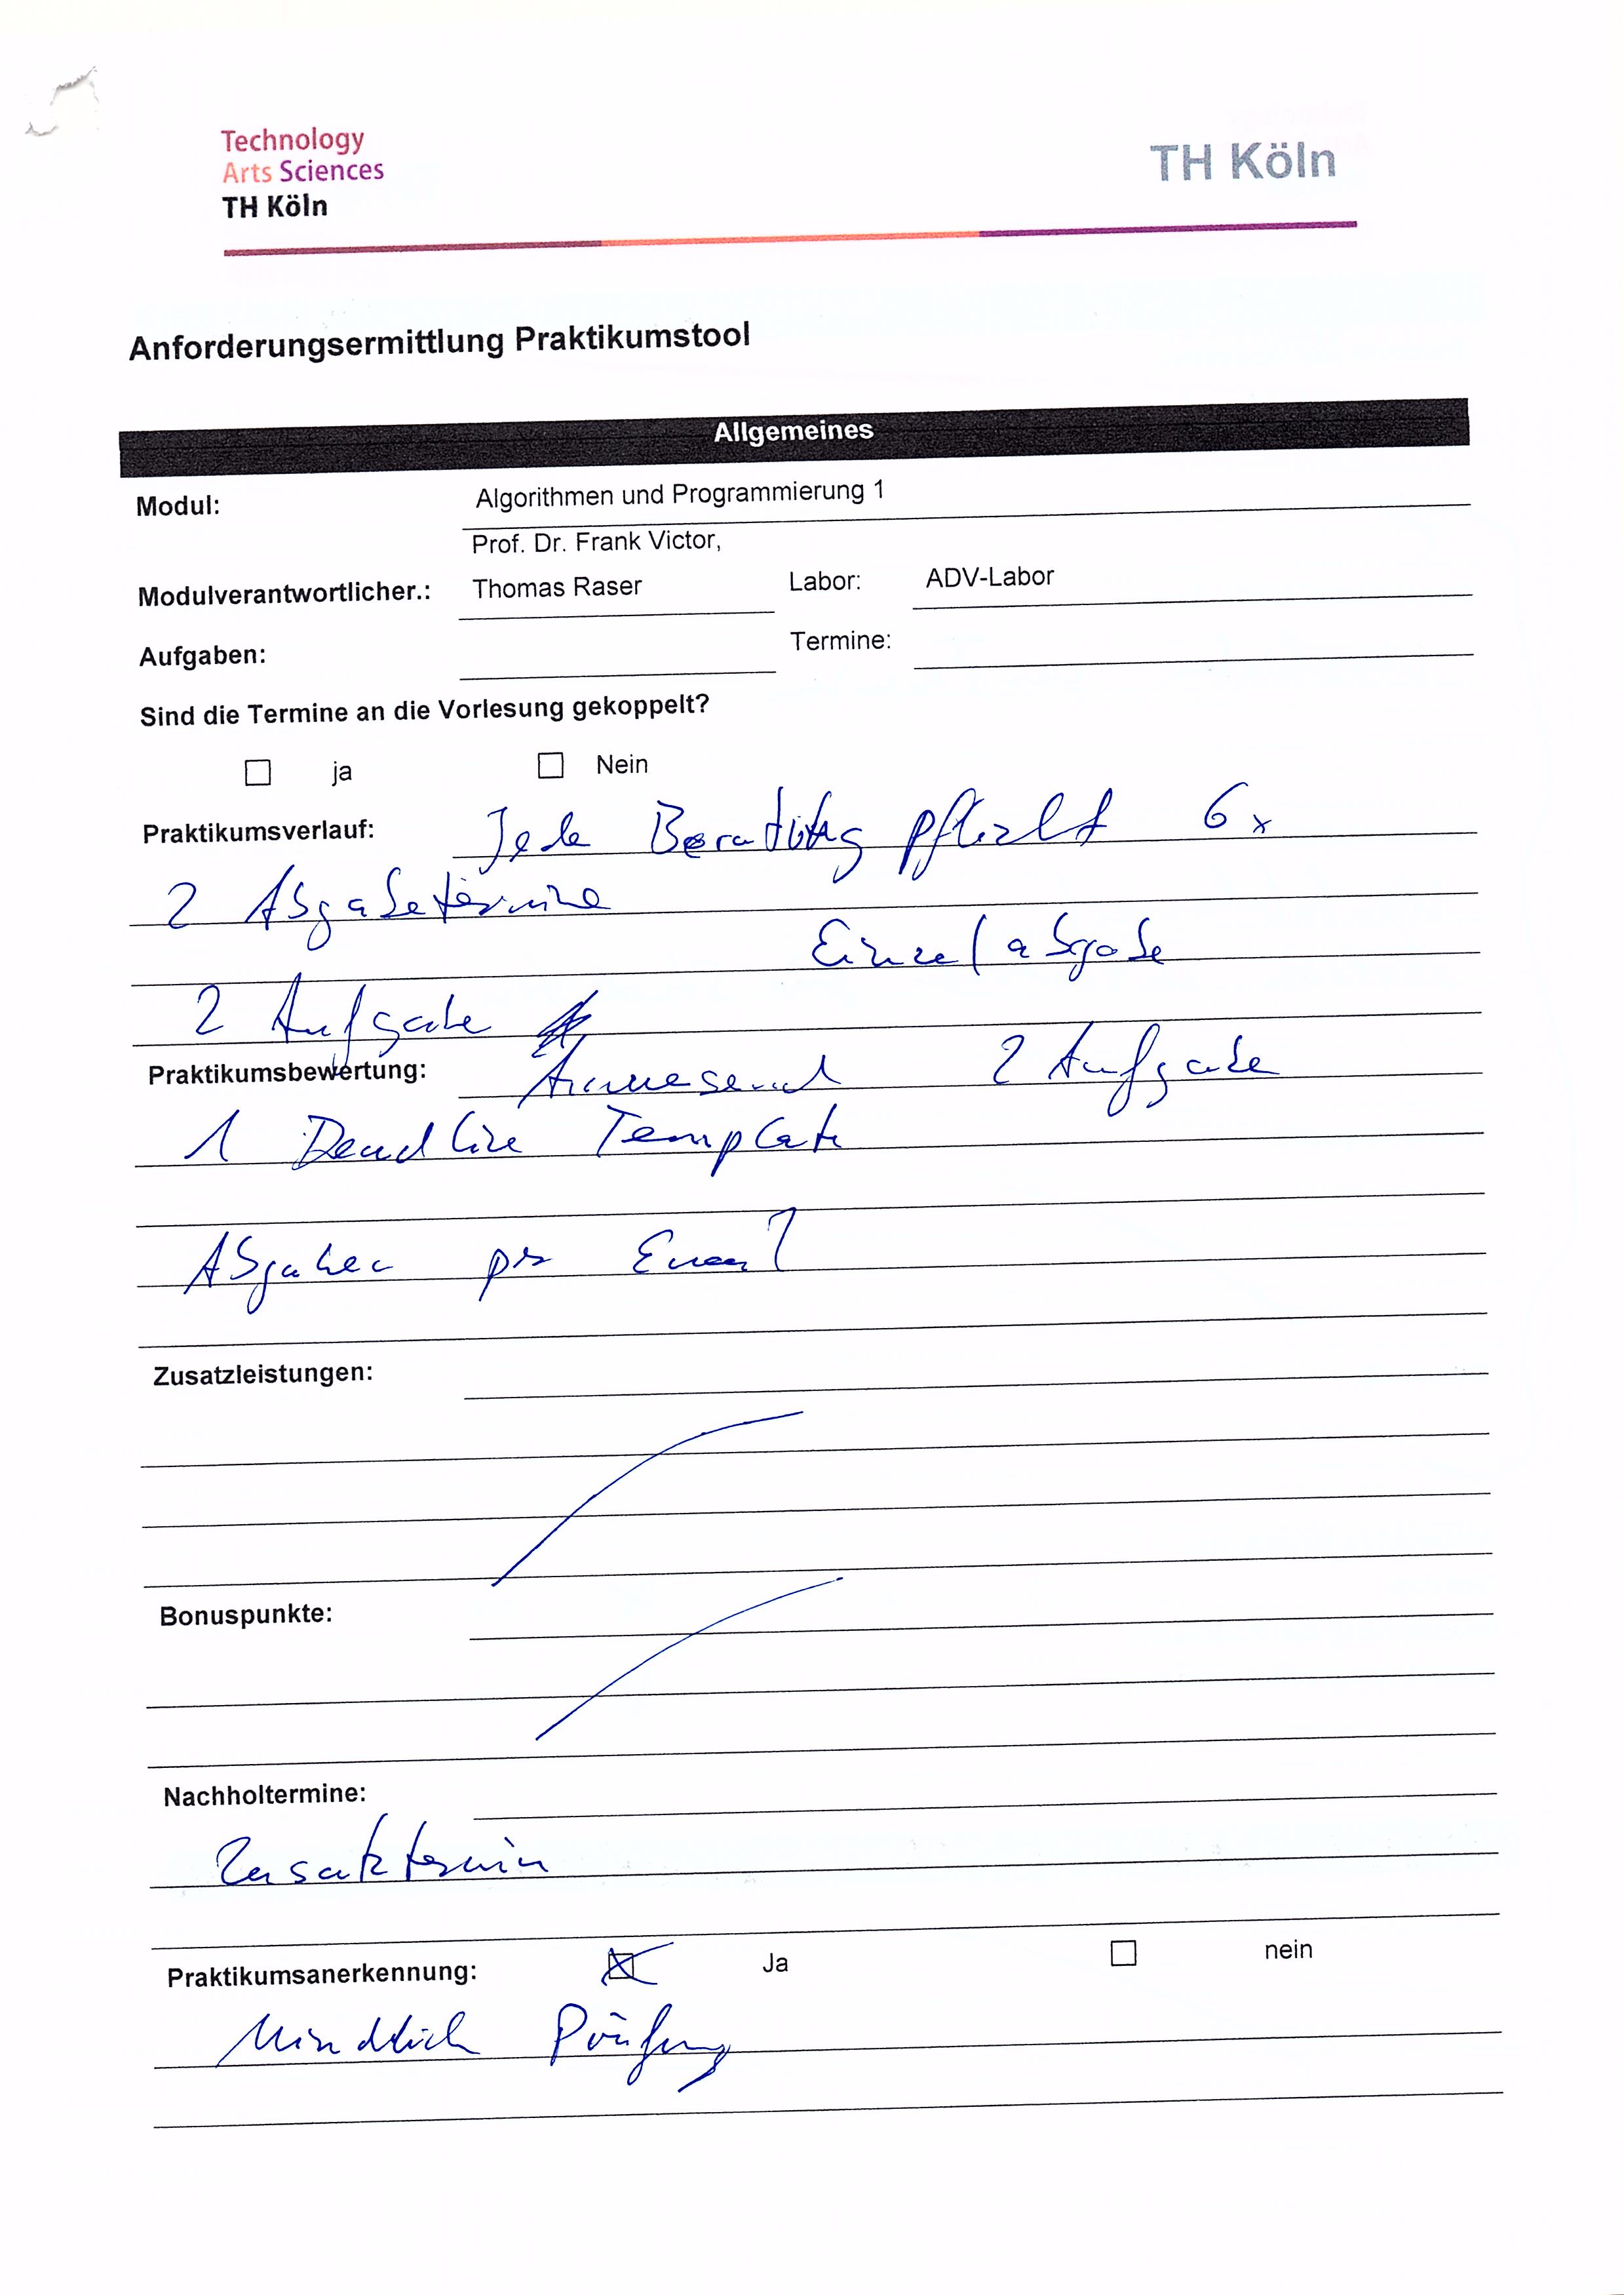 Technology
Arts Sciences
TH Köln
TH Köln
Anforderungsermittlung Praktikumstool
Allgemeines
Modul: Algorithmen und Programmierung 1
Prof. Dr. Frank Victor,
Modulverantwortlicher.: Thomas Raser Labor: ADV-Labor
Aufgaben: Termine:
Sind die Termine an die Vorlesung gekoppelt?
ja Nein
Praktikumsverlauf: Jede Beratung pflicht 6x
2 Abgabetermine
Einzelabgabe
2 Aufgabe
Praktikumsbewertung: Anwesend 2 Aufgabe
1 Deadline Template
Abgaben per Email
Zusatzleistungen:
Bonuspunkte:
Nachholtermine:
Zusatztermin
Praktikumsanerkennung: Ja nein
Mündlich Prüfung